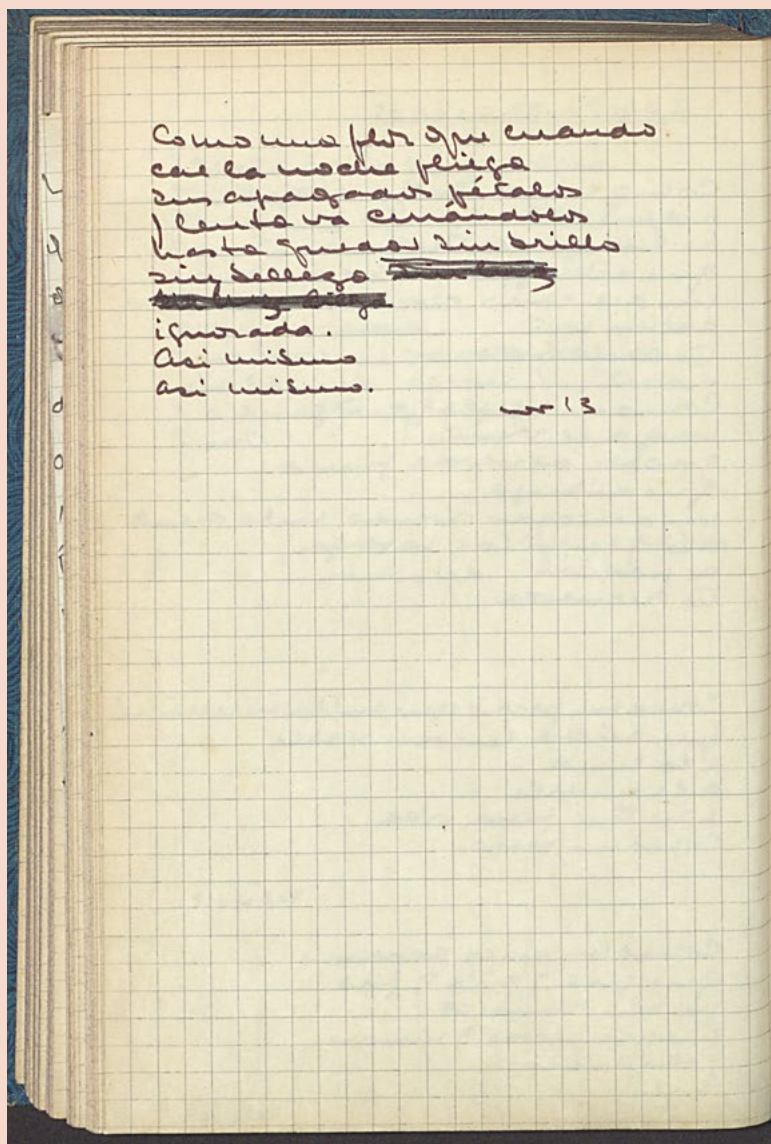 Como una flor que cuando
cae la noche pliega
sus apagados pétalos
y lenta va cerrándolos
hasta quedar sin brillo
sin belleza
ignorada.
Asi mismo
asi mismo.
nov 13